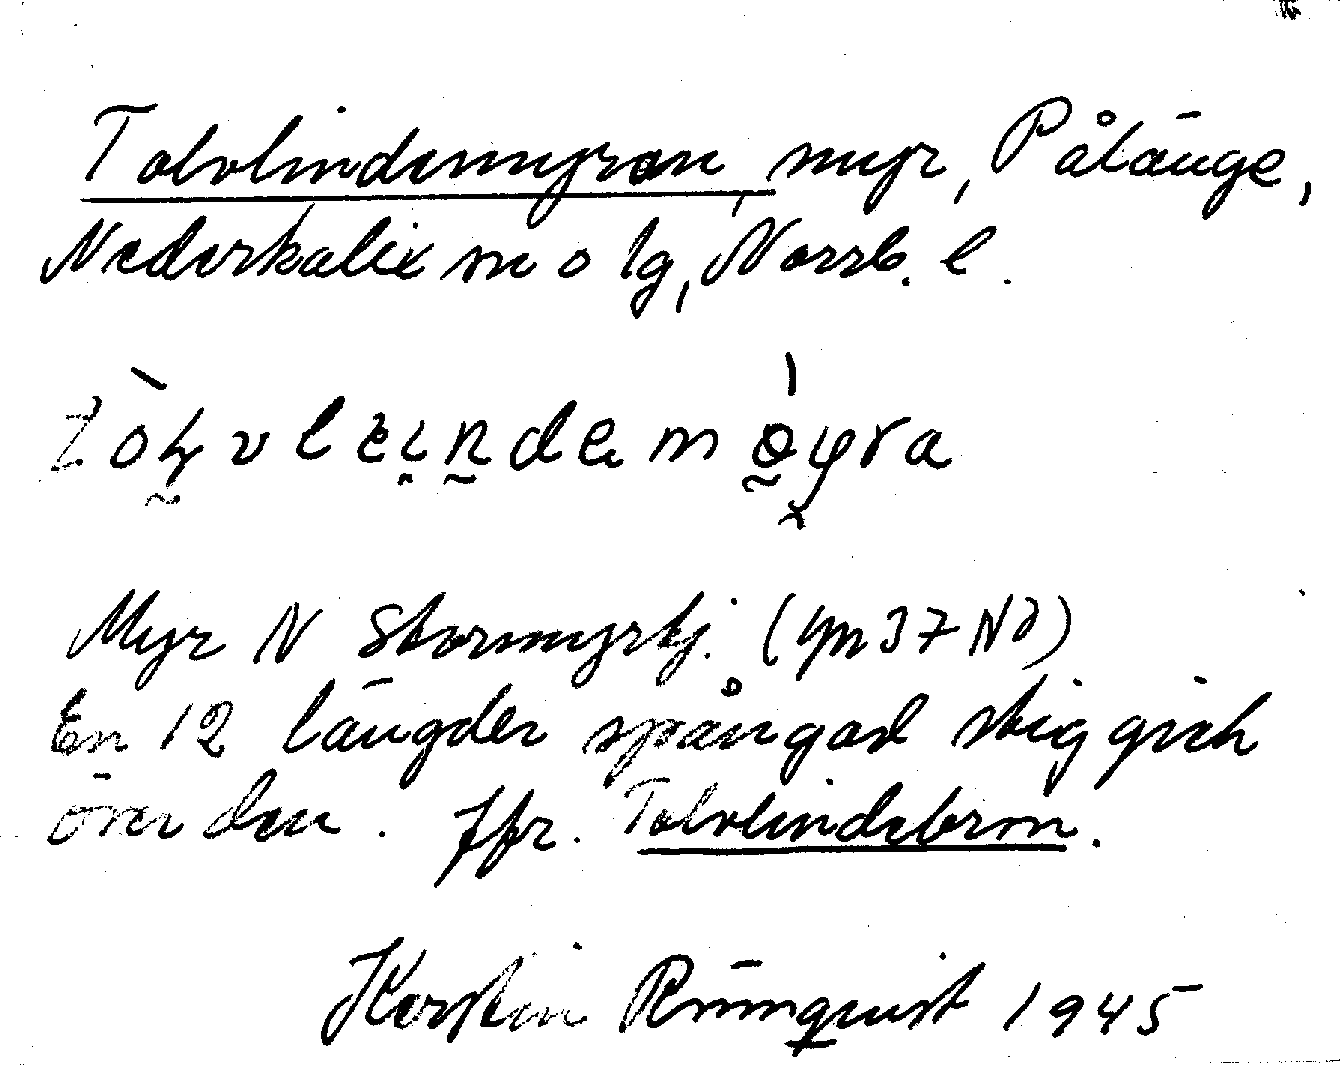 Tolvlindemyran, myr, Pålänge,
Nederkalix sn o lg, Norrb. l.
Myr N Stormyrbj. (Ym 37 NO)
En 12 längder spångad stig gick
över den. Jfr. Tolvlindebron.
Kerstin Rönnquist 1945